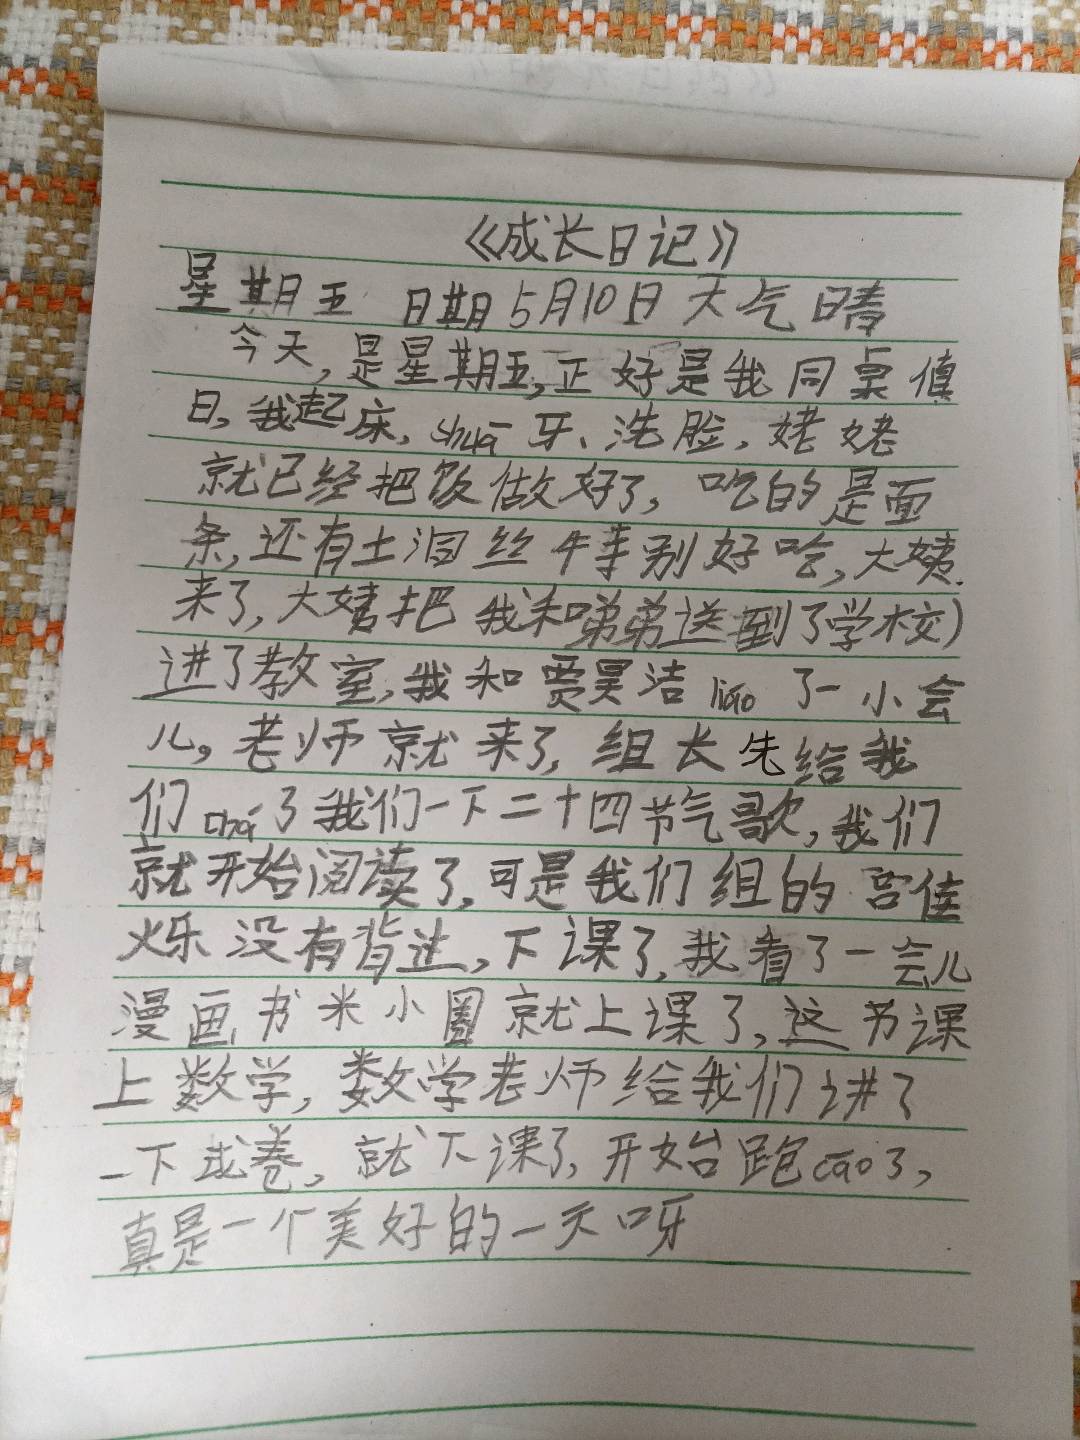 《成长日记》
星期五 日期5月10日 天气晴
今天,是星期五,正好是我同桌值
日。我起床,shuā牙、洗脸,姥姥
就已经把饭做好了,吃的是面
条,还有土泪丝牛寺别好哈,大姨
来了,大姨把我和弟弟送到了学校)
进了教室,我和贾昊洁liáo了一小会
儿。老师就来了,组长先给我
们chá了我们一下二十四节气歌,我们
就开始阅读了,可是我们组的宫佳
烁没有背过,下课了,我看了一会儿
漫画书米小圈就上课了,这节课
上数学,数学老师给我们讲了
一下试卷,就下课了,开始跑cāo了,
真是一个美好的一天呀